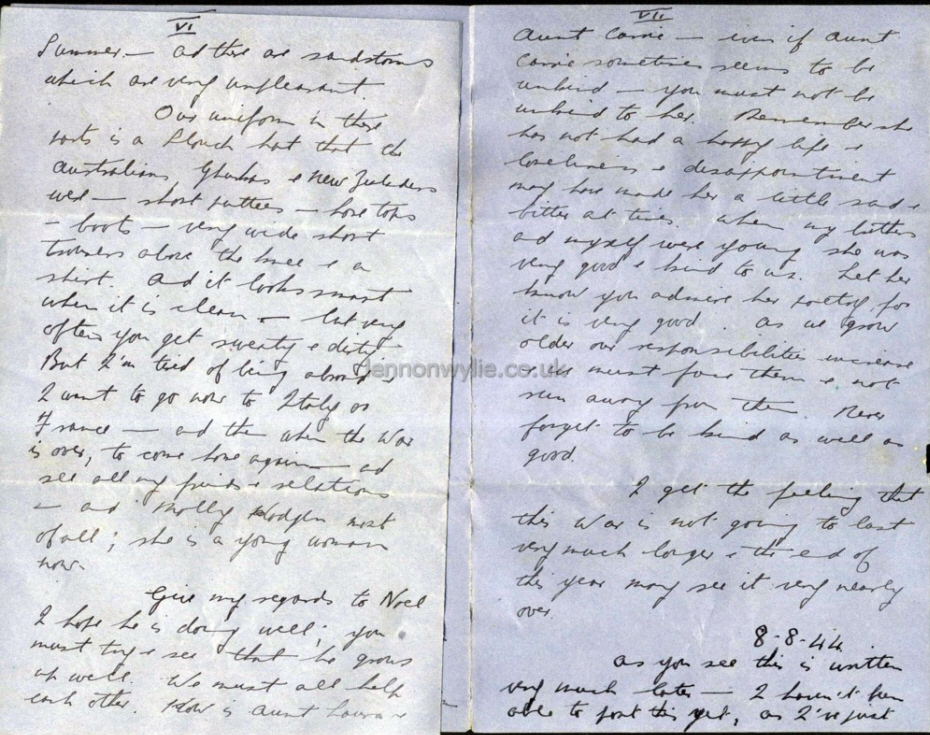 VI
Summer — ad there are sandstorms
which are very unpleasant.
Our uniform in these
parts is a Slouch hat that the
Australians Ghurkas & New Zealanders
wear — short puttees — hose tops
— boots — very wide short
trousers above the knee & a
shirt. And it looks smart
when it is clean — but very
often you get sweaty & dirty
But I'm tired of being abroad &
I want to go now to Italy or
France — ad then when the War
is over, to come home again — ad
see all my friends & relations
— ad Molly Hodgen most
of all; she is a young woman
now.
Give my regards to Noel
I hope he is doing well; you
must try & see that he grows
up well. We must all help
each other. How is Aunt Laura &
VII
Aunt Connie — even if Aunt
Connie sometimes seems to be
unkind — you must not be
unkind to her. Remember she
has not had a happy life &
loneliness & disappointment
may have made her a little sad &
bitter at times. When my brothers
ad myself were young she was
very good & kind to us. Let her
know you admire her poetry for
it is very good. As we grow
older our responsibilities increase
& we must face them & not
run away from them. Never
forget to be kind as well as
good.
I get the feeling that
this War is not going to last
very much longer & the end of
this year may see it very nearly
over.
8-8-44
As you see this is written
very much later — I haven't been
able to post this yet, as I've just
lennonwylie.co.uk